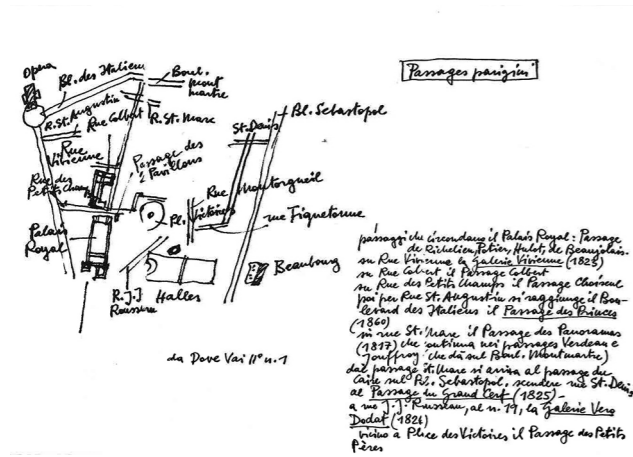 Passages parigini
Opera
Bl. des Italiens
Boul.
mont
martre
R. St. Augustin
Rue Colbert
R. St. Marc
Rue
Vivienne
Passage des
2 Pavillons
Rue des
Petits Champs
Palais
Royal
Pl. Victoires
Rue Montorgueil
rue Tiquetonne
St. Denis
Bl. Sebastopol
Beaubourg
Halles
R. J. J
Rousseau
da Dove Vai n° n. 1
passaggi che circondano il Palais Royal: Passage
de Richelieu, Potier, Hulot, de Beaujolais.
su Rue Vivienne la Galerie Vivienne (1823)
su Rue Colbert il Passage Colbert
su Rue des Petits Champs il Passage Choiseul
poi per Rue St. Augustin si raggiunge il Bou-
levard des Italiens il Passage des Princes
(1860)
in rue St. Marc il Passage des Panoramas
(1817) che continua nei passages Verdeau e
Jouffroy che dà sul Boul. Montmartre)
dal passage St. Marc si arriva al passage du
Caire sul Bl. Sebastopol, scendere rue St. Denis
al Passage du Grand Cerf (1825) -
a rue J. J. Rousseau, al n. 19, la Galerie Vero
Dodat (1826)
vicino a Place des Victoires il Passage des Petits
Pères